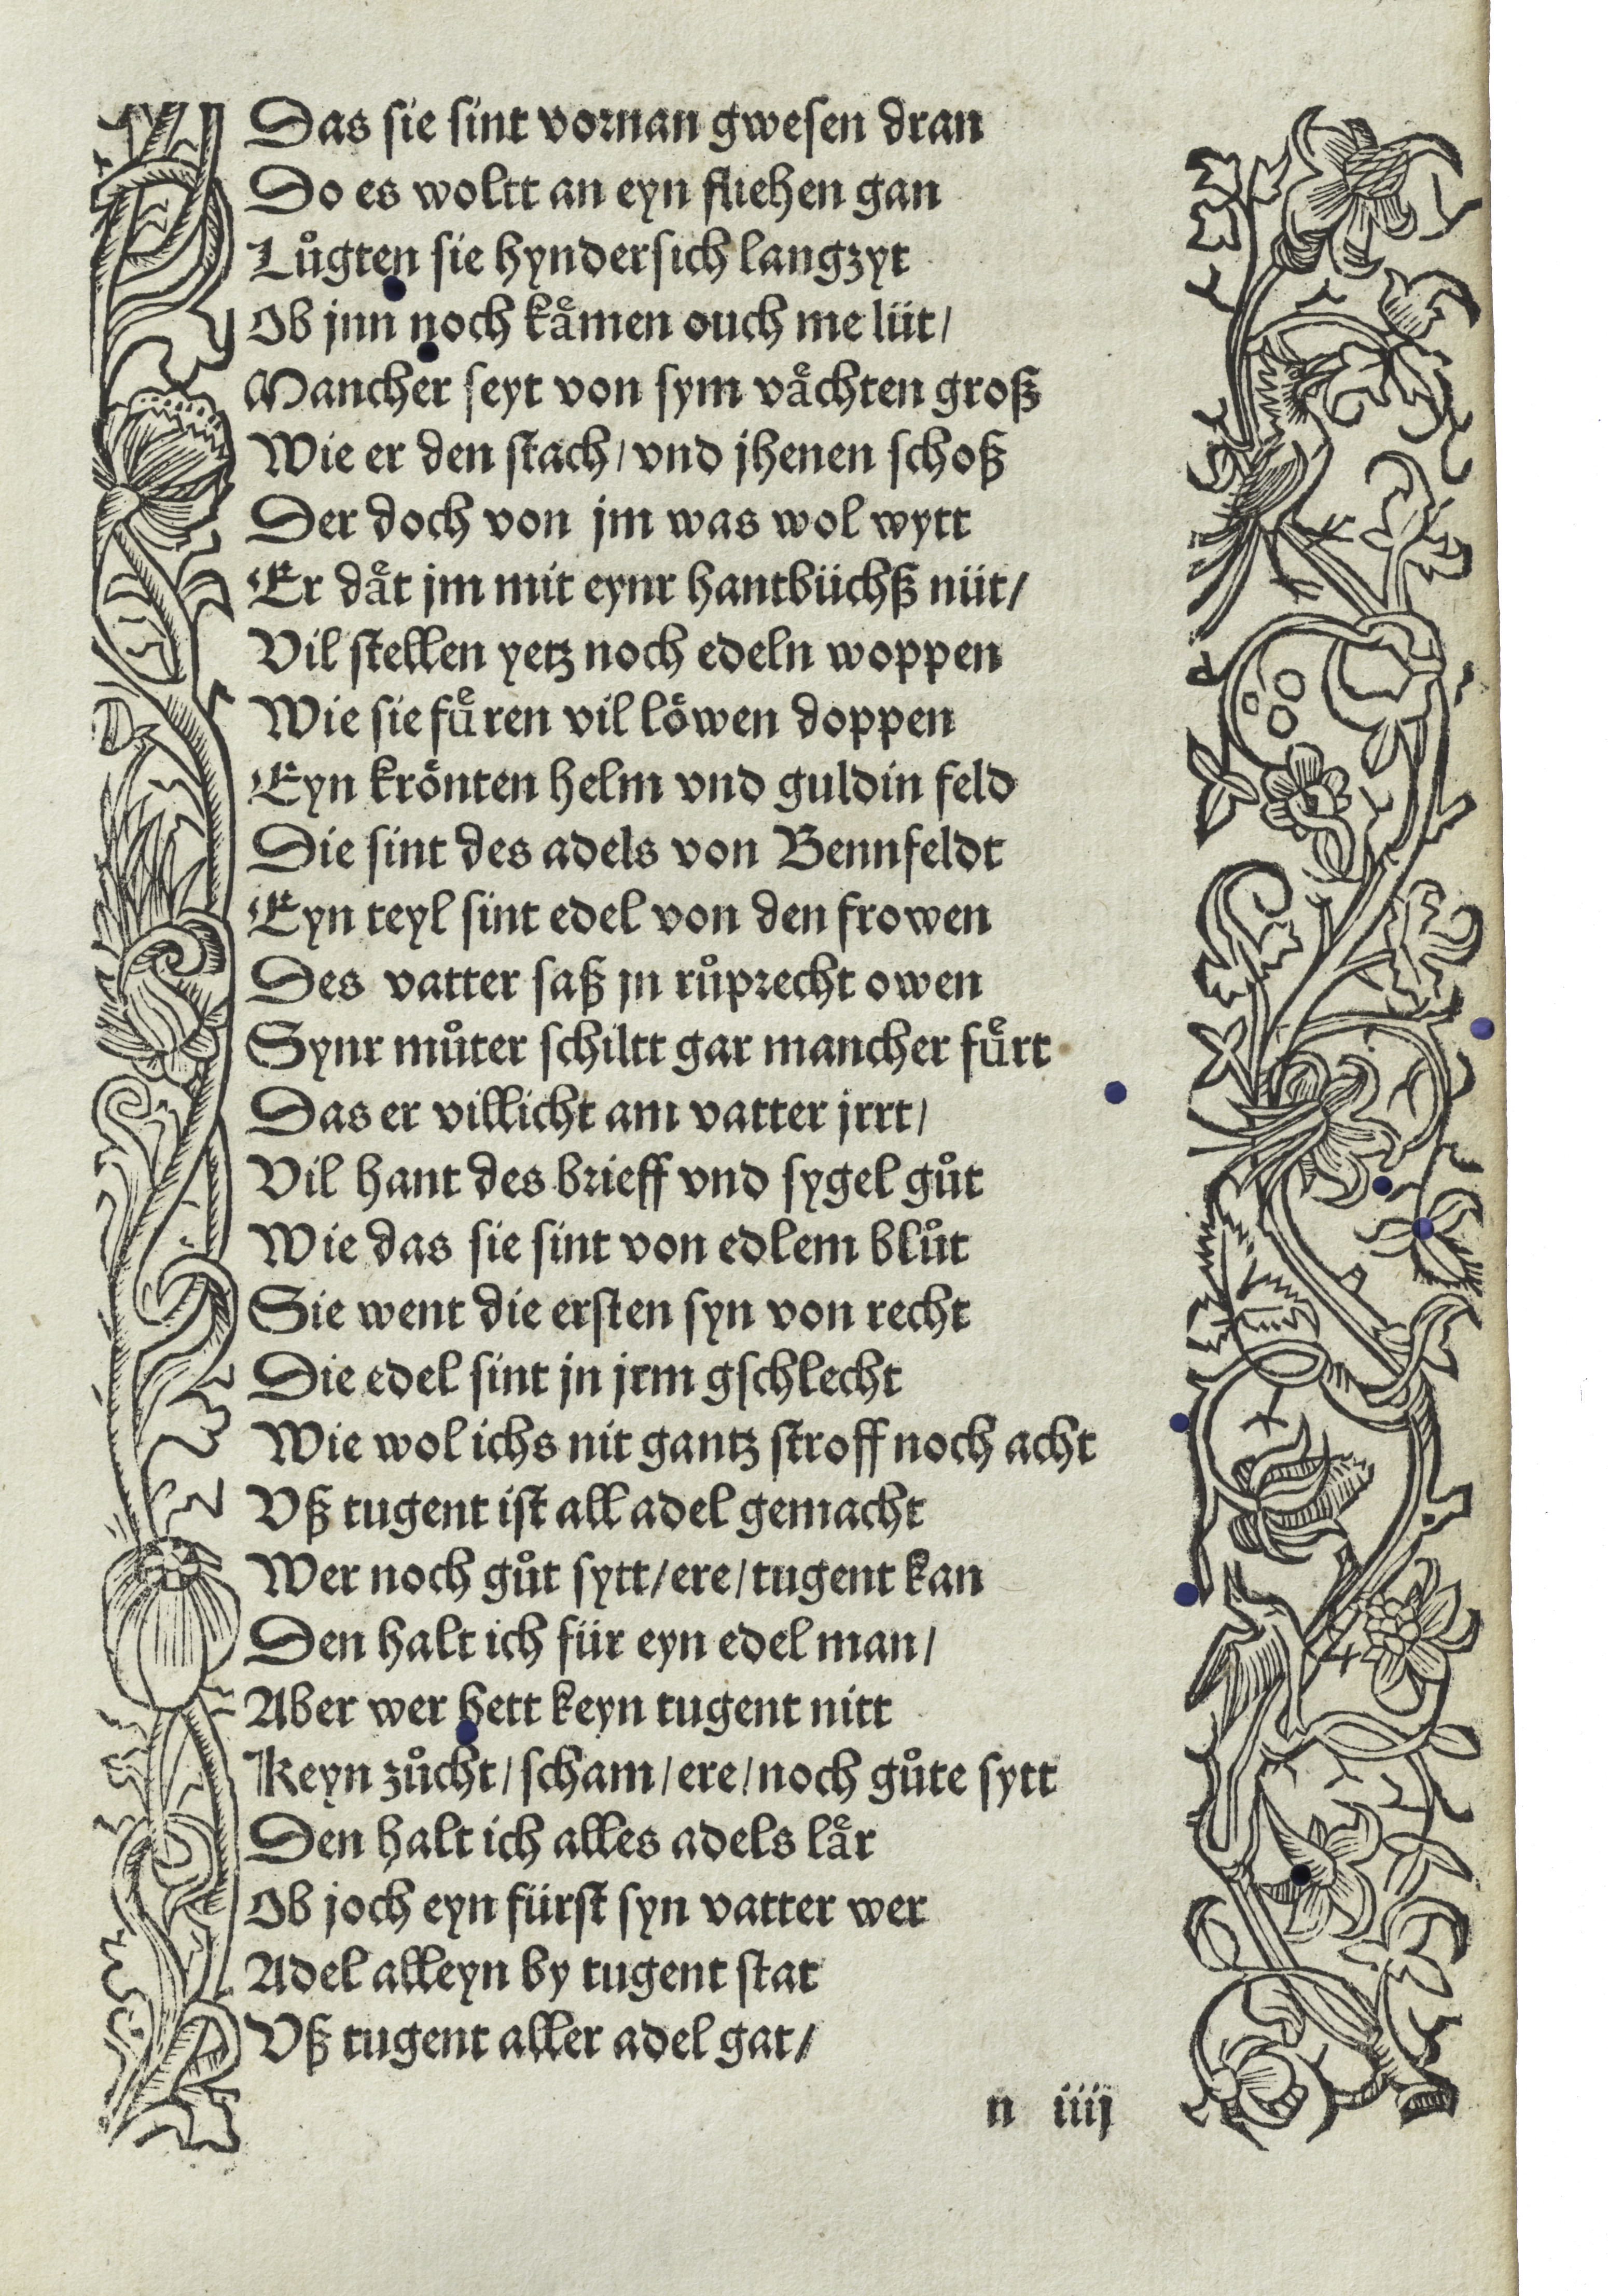 Das sie sint vornan gwesen dran
Do es woltt an eyn fliehen gan
Lůgten sie hyndersich langzyt
Ob jnn noch kaͤmen ouch me lüt/
Mancher seyt von sym vaͤchten groß
Wie er den stach/ vnd jhenen schoß
Der doch von jm was wol wytt
Er daͤt jm mit eynr hantbüchß nüt/
Vil stellen yetz noch edeln woppen
Wie sie fuͤren vil loͤwen doppen
Eyn kroͤnten helm vnd guldin feld
Die sint des adels von Bennfeldt
Eyn teyl sint edel von den frowen
Des vatter saß jn růprecht owen
Synr můter schiltt gar mancher fuͤrt
Das er villicht am vatter jrrt/
Vil hant des brieff vnd sygel gůt
Wie das sie sint von edlem blůt
Sie went die ersten syn von recht
Die edel sint jn jrm gschlecht
Wie wol ichs nit gantz stroff noch acht
Vß tugent ist all adel gemacht
Wer noch gůt sytt/ ere/ tugent kan
Den halt ich für eyn edel man/
Aber wer hett keyn tugent nitt
Keyn zůcht/ scham/ ere/ noch gůte sytt
Den halt ich alles adels laͤr
Ob joch eyn fürst syn vatter wer
Adel alleyn by tugent stat
Vß tugent aller adel gat/
n iiij